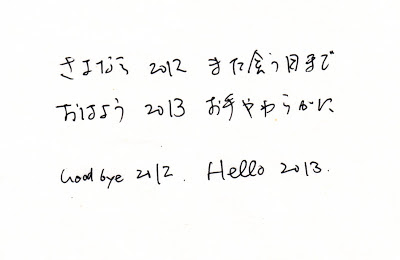 さよなら 2012 また会う日まで
おはよう 2013 お手やわらかに
Good bye 2012. Hello 2013.